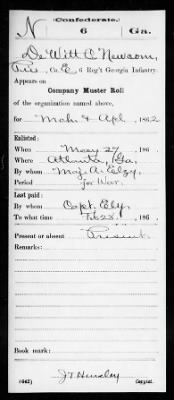 Confederate.
N 6 Ga.
De Witt C Newsom,
Pvt., Co. E, 6 Reg't Georgia Infantry.
Appears on
Company Muster Roll
of the organization named above,
for Mch. & Apl., 1862
Enlisted:
When May 27, 186 .
Where Atlanta, Ga.
By whom Maj. A.
Period for War.
Last paid:
By whom Capt. Ely.
To what time Feb 28, 186 .
Present or absent Present.
Remarks:
Book mark:
(642) Copyist.